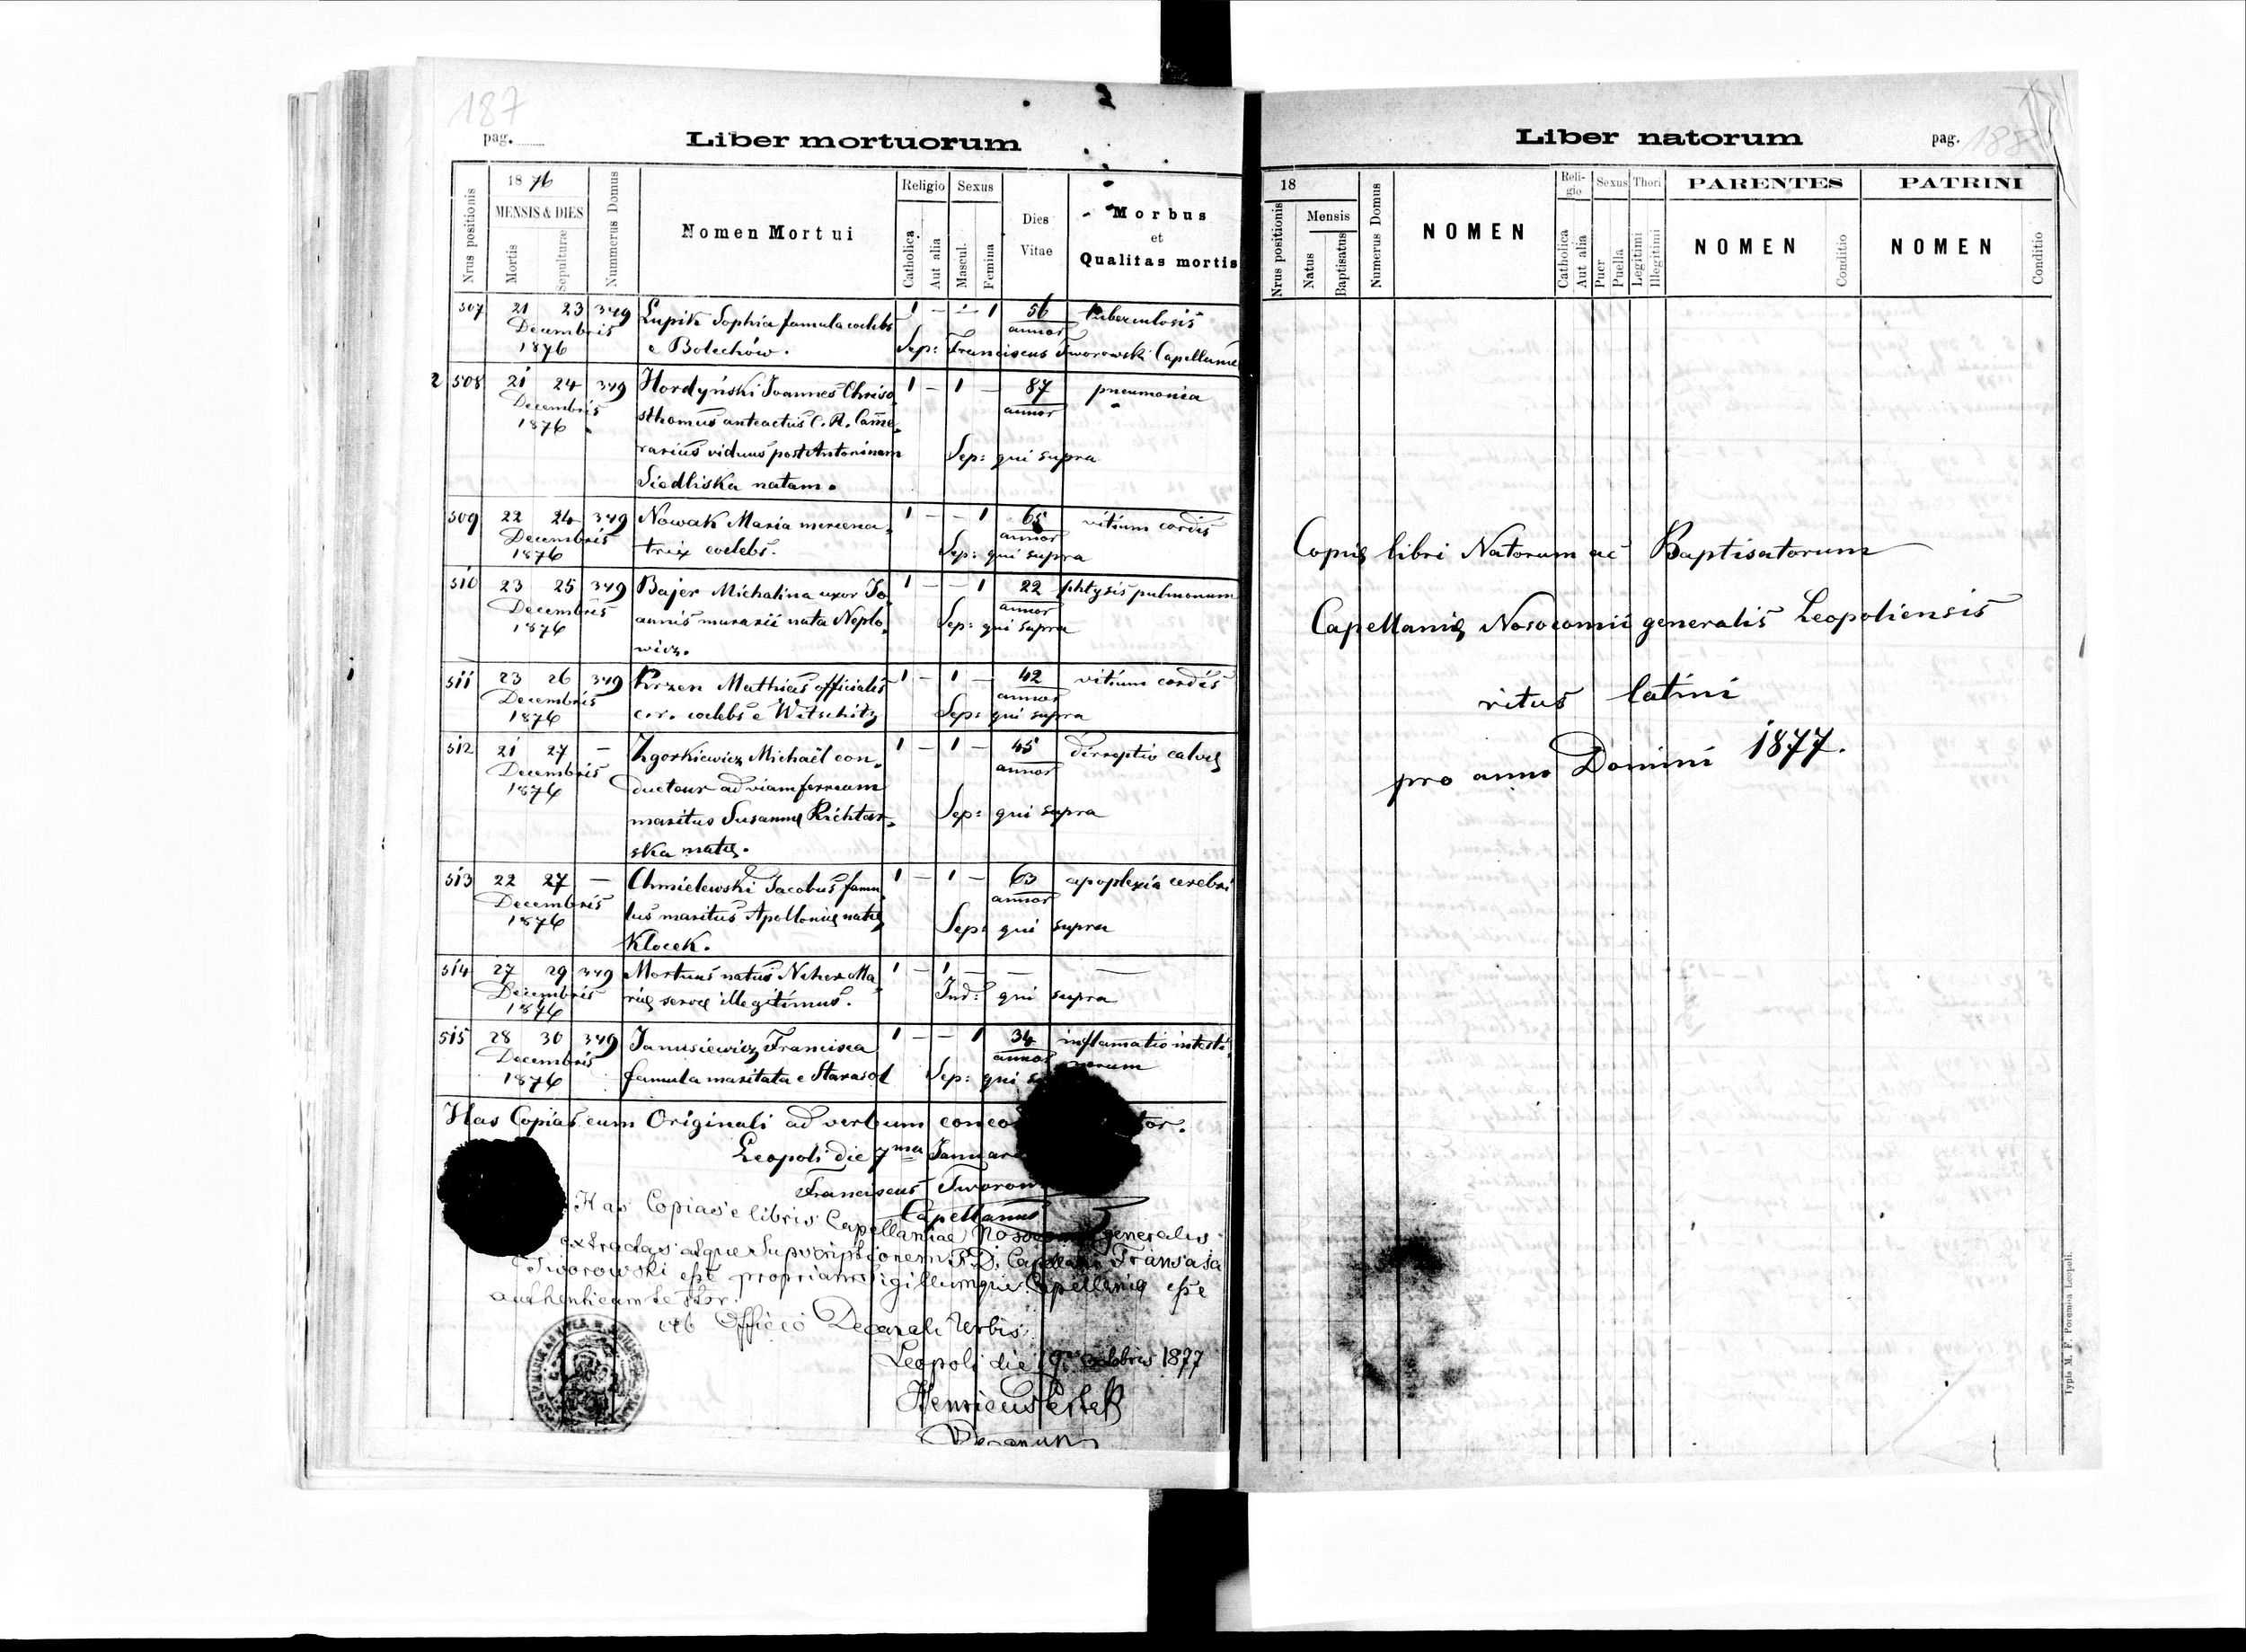 187
pag.
Liber mortuorum
Nrus positionis
1876
MENSIS & DIES
Mortis
Sepulturæ
Nummerus Domus
Nomen Mortui
Religio
Catholica
Aut alia
Sexus
Mascul.
Femina
Dies
Vitae
Morbus
et
Qualitas mortis
507 21 23 349 Łupik Sophia famula coelebs 1 - - 1 56 tuberculosis
Decembris annor
1876 e Bolechów. Sep: Franciscus Tworowski Capellanus
2 508 21 24 349 Hordyński Joannes Chriso- 1 - 1 - 87 pneumonia
Decembris sthomus anteactus C. R. Came- annor
1876
rarius viduus post Antoninam Sep: qui supra
Siedliska natam.
509 22 24 349 Nowak Maria mercena- 1 - - 1 65 vitium cordis
Decembris annor
1876 trix coelebs. Sep: qui supra
510 23 25 349 Bajer Michalina uxor Jo- 1 - - 1 22 phtysis pulmonum
Decembris annor
1876 annis murarii nata Neplo- Sep: qui supra
wicz.
511 23 26 349 Krzen Mathias officialis 1 - 1 - 42 vitium cordis
Decembris annor
1876 c.r. coelebs e Witschitz Sep: qui supra
512 21 27 - Zgorkiewicz Michaël con- 1 - 1 - 45 dirreptio calvę
Decembris annor
1876 ducteur ad viam ferream
maritus Susannę Richtar- Sep: qui supra
ska natę.
513 22 27 - Chmielewski Jacobus famu- 1 - 1 - 63 apoplexia cerebri
Decembris annor
1876 lus maritus Apollonię natę Sep: qui supra
Klocek.
514 27 29 349 Mortuus natus Neher Ma- 1 - 1 - - -
Decembris
1876 rię servę illegitimus. Ind: qui supra
515 28 30 349 Janusiewicz Francisca 1 - - 1 34 inflamatio intesti-
Decembris annor norum
1876 famula maritata e Starasol Sep: qui
Has Copias cum Originali ad verbum
Leopoli die 7ma
Franciscus
Capellanus
Has Copias e libris Capellaniae generalis
extractas atque Supscriptionem
Tworowski esse propriam Sigillumque Capellanię esse
authenticum testor.
Ab Officio Decanali Urbis.
Leopoli die 1877
Henricus
Decanus
Liber natorum
pag. 188
Nrus positionis
18
Mensis
Natus
Baptisatus
Numerus Domus
NOMEN
Reli-
gio
Catholica
Aut alia
Sexus
Puer
Puella
Thori
Legitimi
Illegitimi
PARENTES
NOMEN
Conditio
PATRINI
NOMEN
Conditio
Copię libri Natorum ac Baptisatorum
Capellanię Nosocomii generalis Leopoliensis
ritus latini
pro anno Domini 1877.
Typis M. F. Poremba Leopoli.